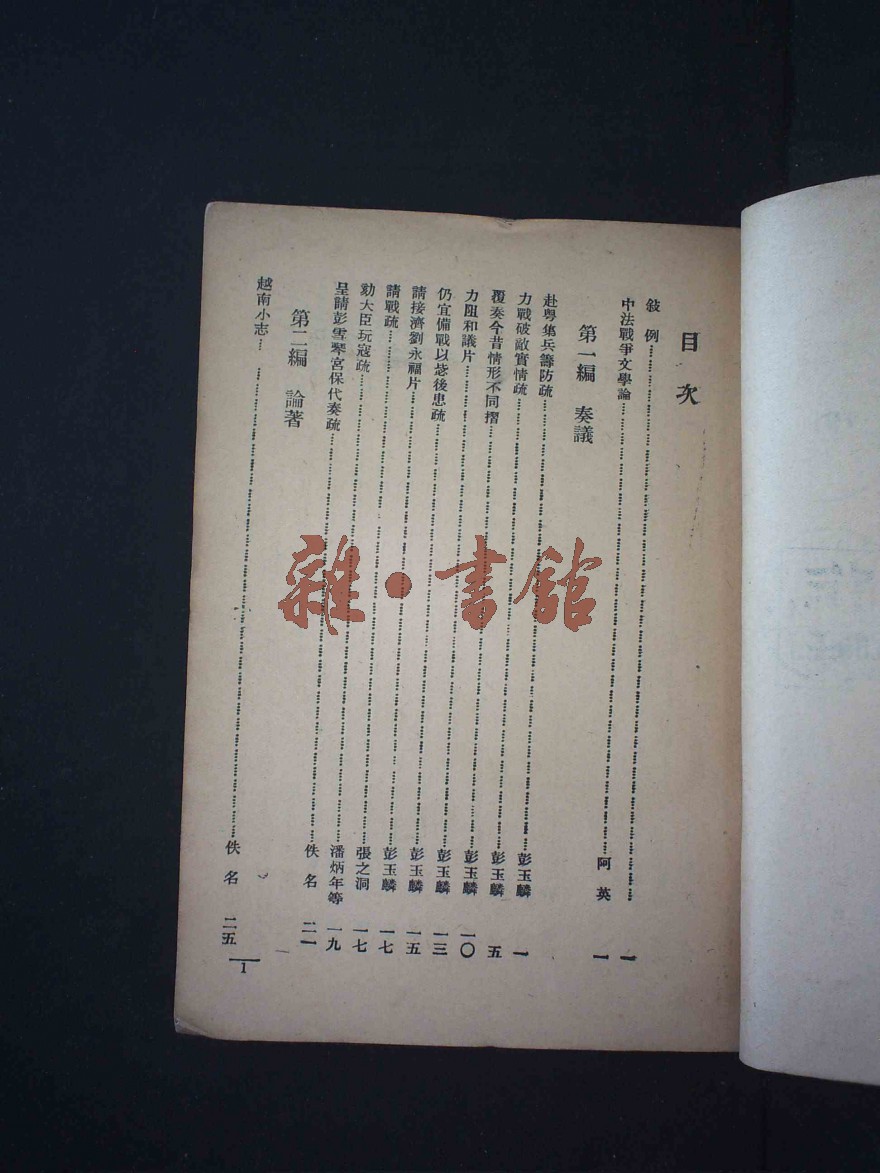 目次
敍例…………一
中法戰爭文學論…………阿英 一
第一編 奏議
赴粤集兵籌防疏…………彭玉麟 一
力戰破敵實情疏…………彭玉麟 五
覆奏今昔情形不同摺…………彭玉麟 一〇
力阻和議片…………彭玉麟 一三
仍宜備戰以毖後患疏…………彭玉麟 一五
請接濟劉永福片…………彭玉麟 一七
請戰疏…………張之洞 一七
劾大臣玩寇疏…………潘炳年等 一九
呈請彭雪琴宮保代奏疏…………佚名 二一
第二編 論著
越南小志…………佚名 二五
1
雜·書館